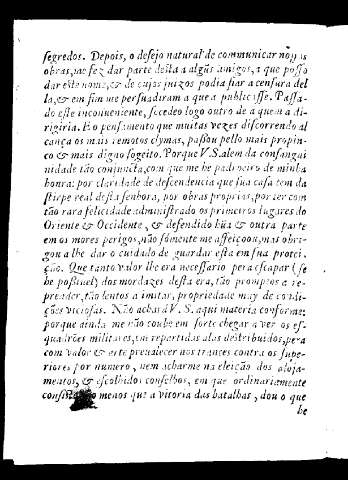 segredos. Depois, o desejo natural de communicar nossas
obras, me fez dar parte desta a algũs amigos, a que posso
dar este nome, & de cujos juizos podia fiar a censura del
la, & em fim me persuadiram a que a publicasse. Passa-
do este inconueniente, socedeo logo outro de a quem a di-
rigiria. E o pensamento que muitas vezes discorrendo al
cança os mais remotos clymas, passou pello mais propin-
co & mais digno sogeito. Porque V.S. alem da consangui
nidade tão conjuncta, com que me he padroeiro de minha
honra: por claridade de descendencia que sua casa tem da
stirpe real desta senhora, por obras proprias, por ter com
tão rara felicidade administrado os primeiros lugares do
Oriente & Occidente, & defendido hũa & outra parte
em os mores perigos, não sómente me affeiçoou, mas obri-
gou a lhe dar o cuidado de guardar esta em sua protei-
ção. Que tanto valor lhe era necessario pera escapar (se
he possiuel) dos mordazes desta era, tão promptos a re-
preender, tão lentos a imitar, propriedade muy de condi-
ções viciosas. Não achará V.S. aqui materia conforme:
porque ainda me não coube em sorte chegar a ver os es-
quadrões militares, em repartidas alas destribuidos, pera
com valor & arte preualecer nos trances contra os supe-
riores por numero, nem acharme na eleição dos aloja-
mentos, & escolhidos conselhos, em que ordinariamente
consiste não menos que a vitoria das batalhas, dou o que
he